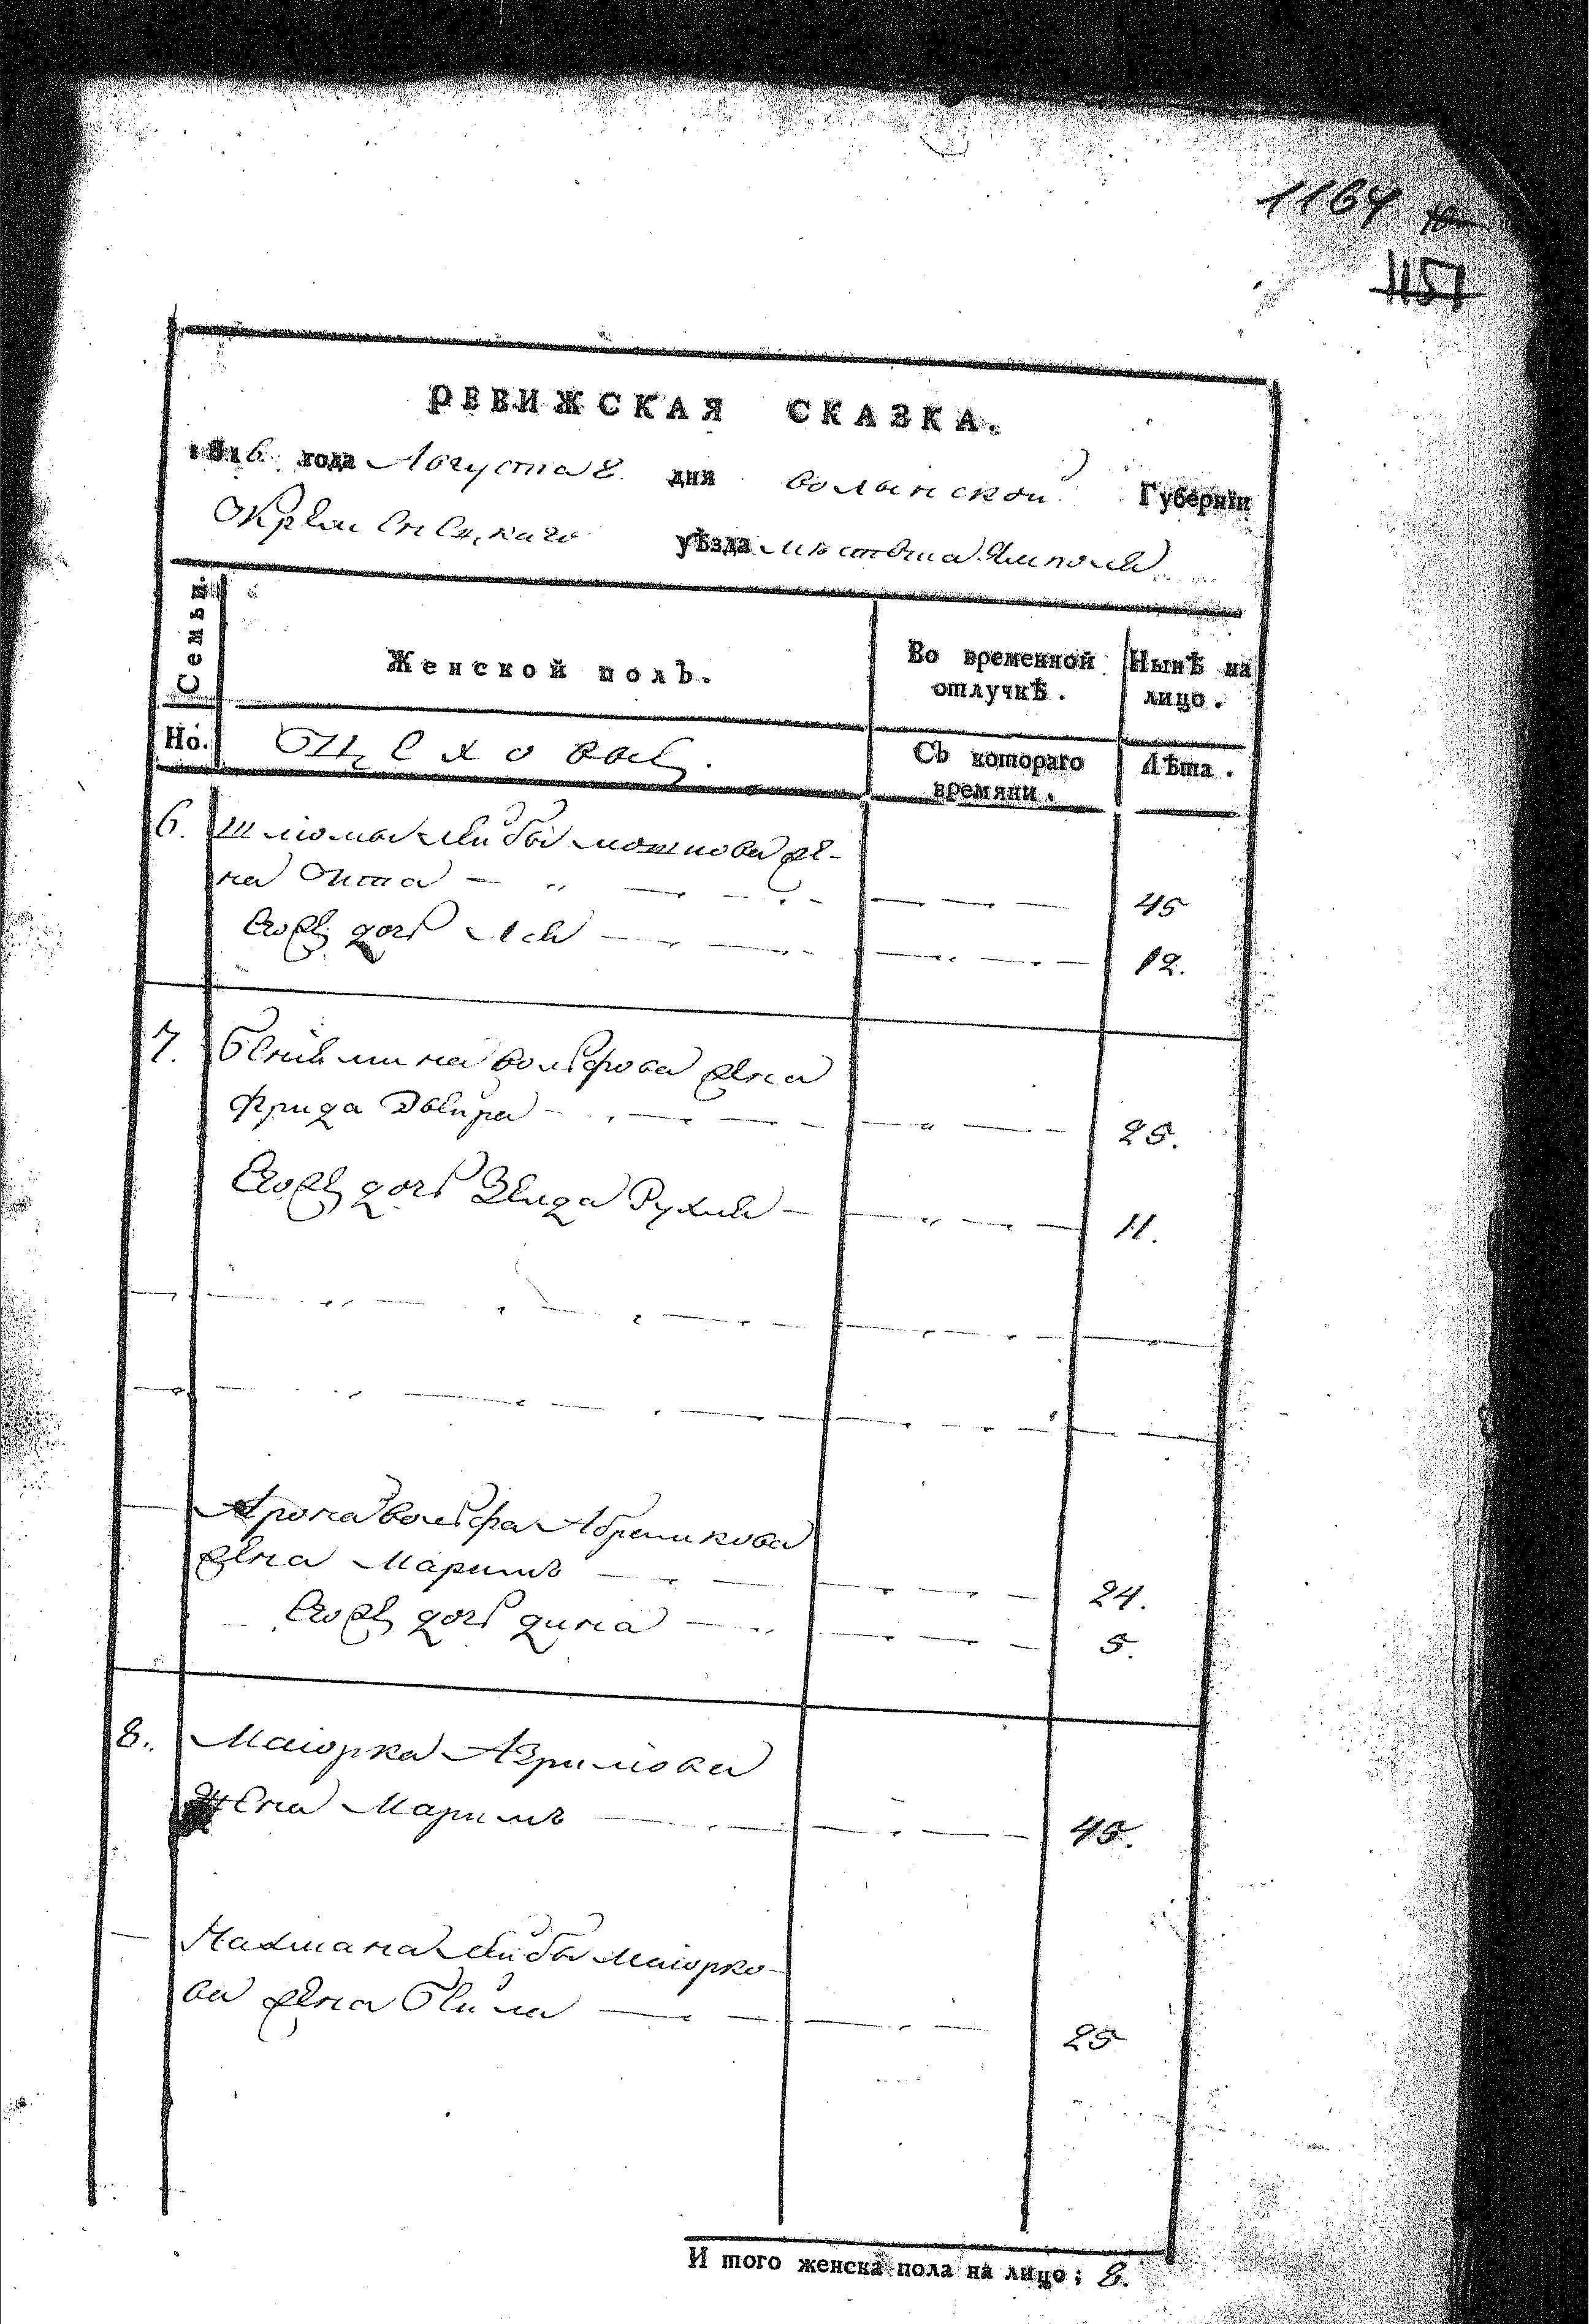 1164 10
1151
РЕВИЖСКАЯ СКАЗКА.
1816. года Августа 8. дня Волынской Губернїи
Кремѣнецкаго уѣзда мѣстечка Ямполя
Семьи.
Женской полъ.
Во временной отлучкѣ.
Нынѣ на лицо.
Но.
Цеховые.
Съ котораго времяни.
Лѣта.
6. Шліомы Лейбы Мошкова же-
на Ита 45
Его же дочь Лея 12.
7. Бенiямина Вольфова жена
Фрида Двейра 25.
Его же дочь Зелда Рухля 11.
Арона Вольфа Абрамкова
жена Маримъ 24.
Его же дочь Дина 5.
8. Маіорка Азрилова
жена Маримъ 45.
Нахмана Лейбы Маіорко-
ва жена Бейла 25
И того женска пола на лицо; 8.